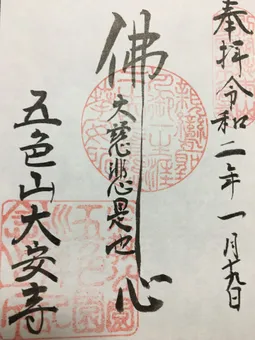 奉拝 令和二年一月十九日
佛心
大慈悲是也
五色山大安寺